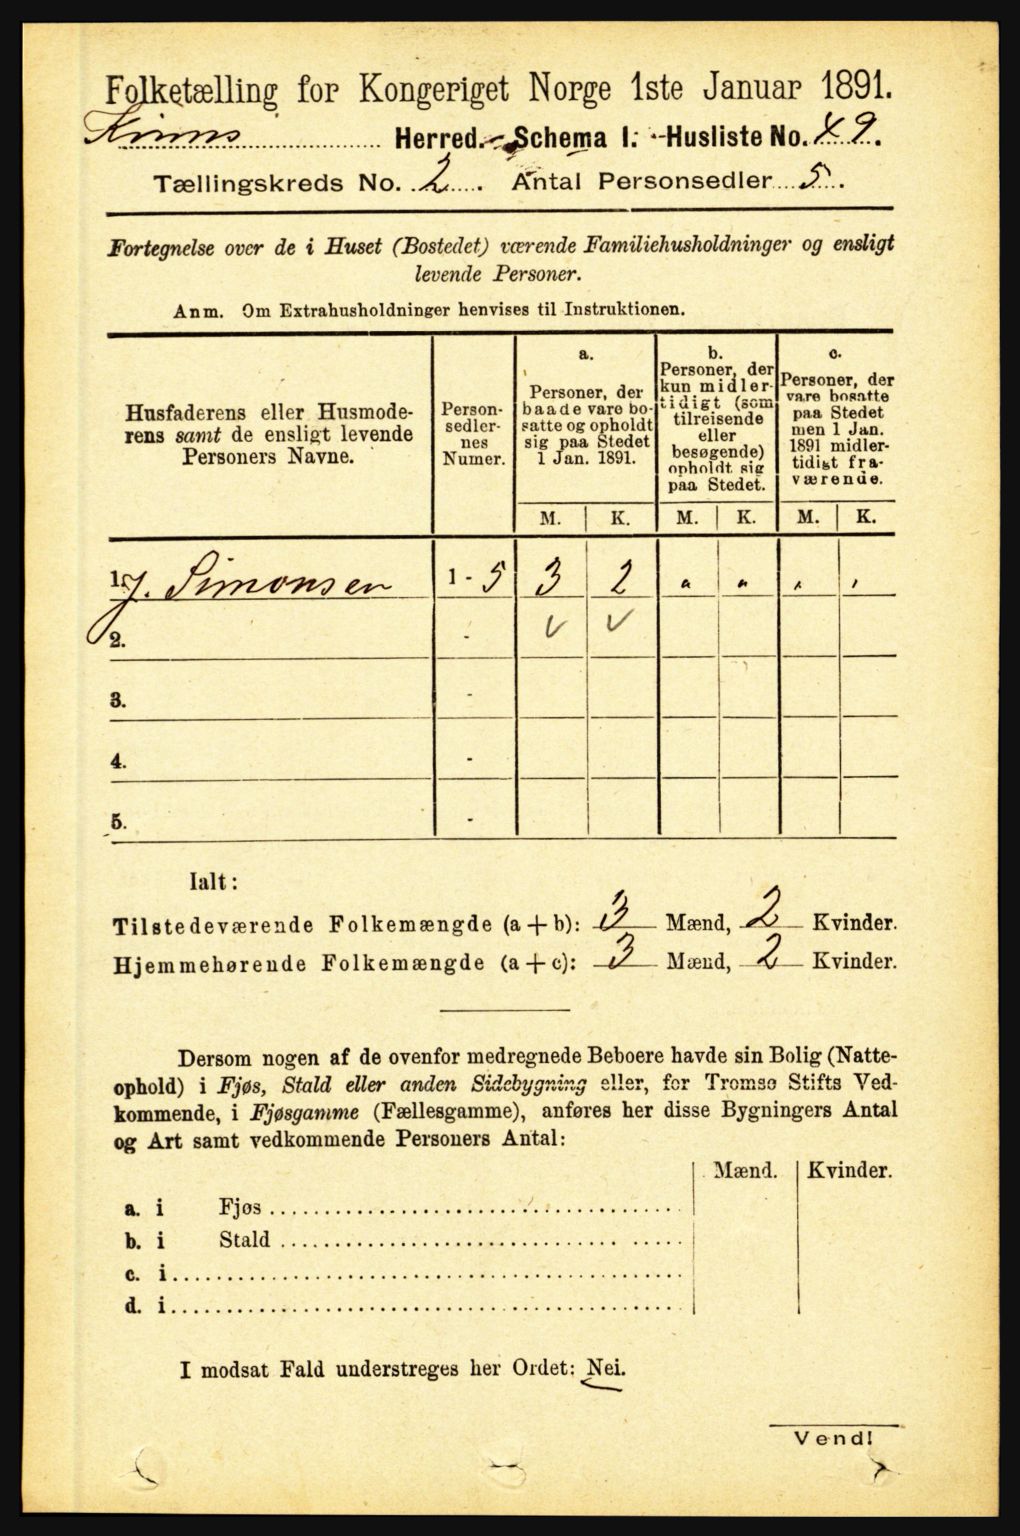 Folketælling for Kongeriget Norge 1ste Januar 1891.
Kinns Herred. Schema I. Husliste No. 49.
Tællingskreds No. 2. Antal Personsedler 5.
Fortegnelse over de i Huset (Bostedet) værende Familiehusholdninger og ensligt
levende Personer.
Anm. Om Extrahusholdninger henvises til Instruktionen.
Husfaderens eller Husmode-
rens samt de ensligt levende
Personers Navne.
Person-
sedler-
nes
Numer.
a.
Personer, der
baade vare bo-
satte og opholdt
sig paa Stedet
1 Jan. 1891.
b.
Personer, der
kun midler-
tidigt (som
tilreisende
eller
besøgende)
opholdt sig
paa Stedet.
c.
Personer, der
vare bosatte
paa Stedet
men 1 Jan.
1891 midler-
tidigt fra-
værende.
M. K. M. K. M. K.
1. J. Simonsen 1 - 5 3 2 „ „ „ „
2. - v v
3. -
4. -
5. -
Ialt:
Tilstedeværende Folkemængde (a + b): 3 Mænd, 2 Kvinder.
Hjemmehørende Folkemængde (a + c): 3 Mænd, 2 Kvinder.
Dersom nogen af de ovenfor medregnede Beboere havde sin Bolig (Natte-
ophold) i Fjøs, Stald eller anden Sidebygning eller, for Tromsø Stifts Ved-
kommende, i Fjøsgamme (Fællesgamme), anføres her disse Bygningers Antal
og Art samt vedkommende Personers Antal:
Mænd. Kvinder.
a. i Fjøs
b. i Stald
c. i
d. i
I modsat Fald understreges her Ordet: Nei.
Vend!